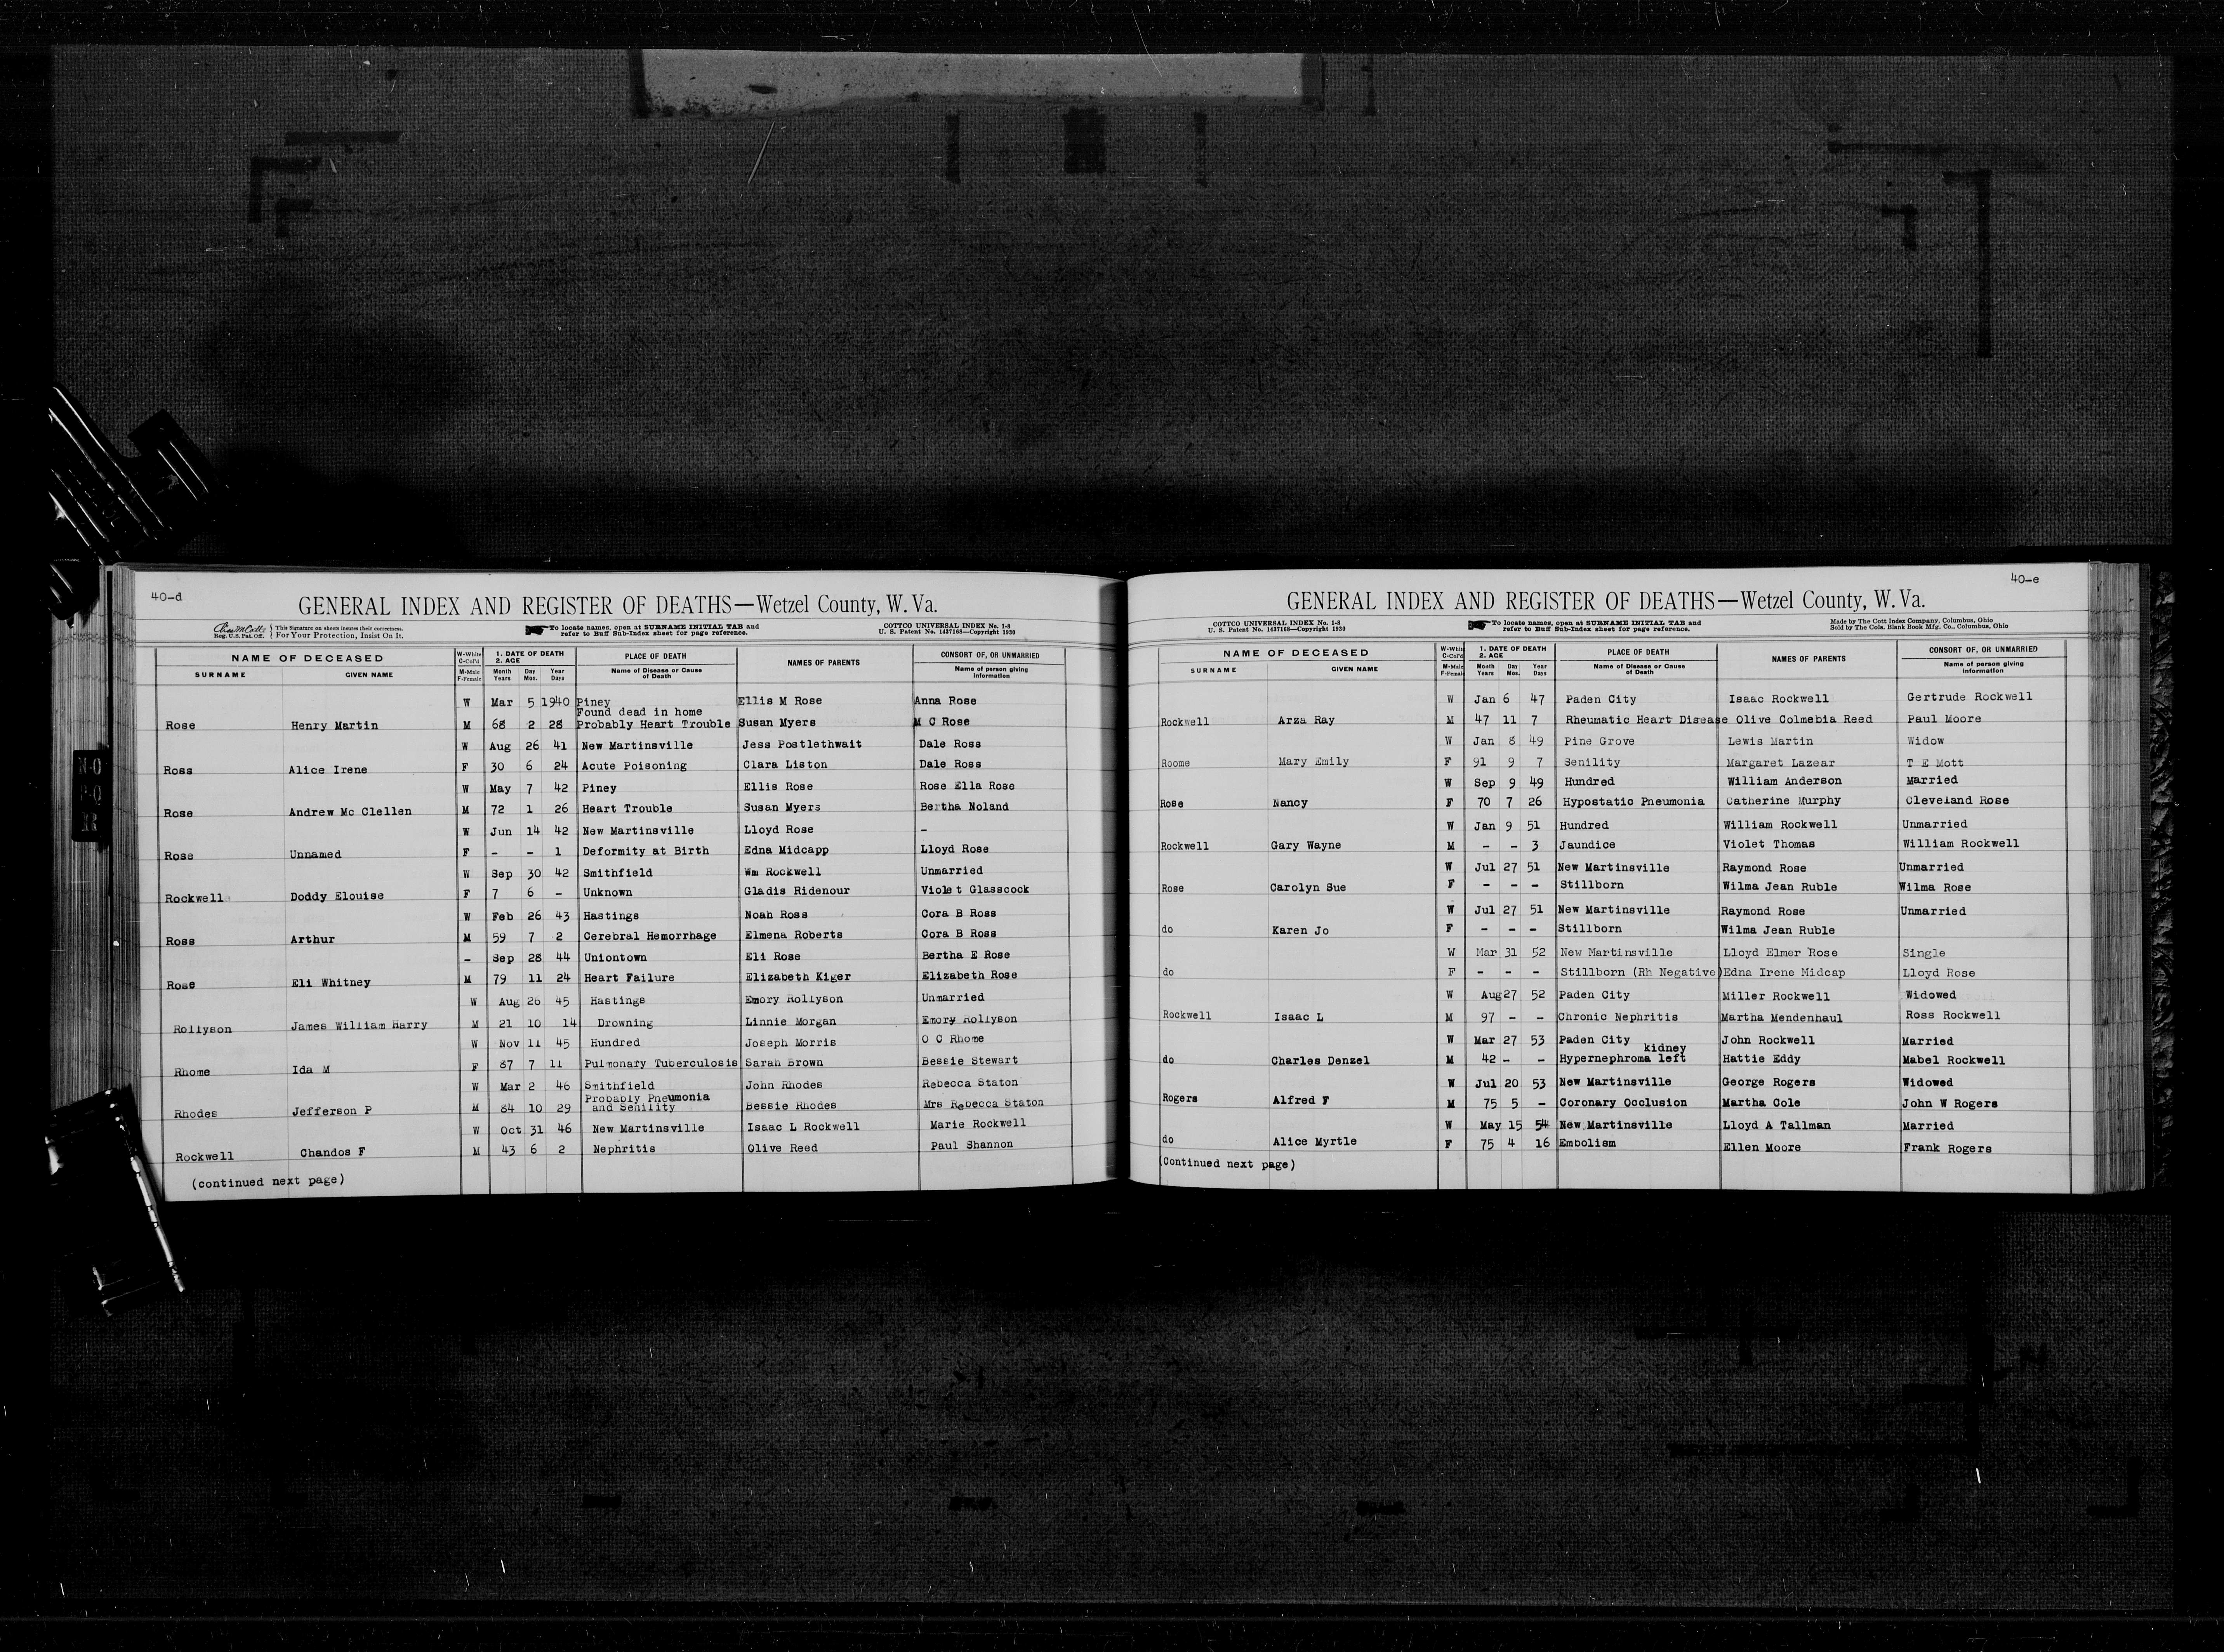 40-d
GENERAL INDEX AND REGISTER OF DEATHS—Wetzel County, W. Va.
Reg. U.S. Pat. Off. { This Signature on sheets insures their correctness. For Your Protection, Insist On It.
To locate names, open at SURNAME INITIAL TAB and refer to Buff Sub-Index sheet for page reference.
COTTCO UNIVERSAL INDEX No. 1-8
U. S. Patent No. 1437168—Copyright 1930
NAME OF DECEASED
SURNAME GIVEN NAME
W-White C-Col'd M-Male F-Female
1. DATE OF DEATH 2. AGE
Month Years Day Mos. Year Days
PLACE OF DEATH Name of Disease or Cause of Death
NAMES OF PARENTS
CONSORT OF, OR UNMARRIED Name of person giving information
W Mar 5 1940 Piney Ellis M Rose Anna Rose
Found dead in home
Rose Henry Martin M 68 2 28 Probably Heart Trouble Susan Myers M C Rose
W Aug 26 41 New Martinsville Jess Postlethwait Dale Ross
Ross Alice Irene F 30 6 24 Acute Poisoning Clara Liston Dale Ross
W May 7 42 Piney Ellis Rose Rose Ella Rose
Rose Andrew Mc Clellen M 72 1 26 Heart Trouble Susan Myers Bertha Noland
W Jun 14 42 New Martinsville Lloyd Rose -
Rose Unnamed F - - 1 Deformity at Birth Edna Midcapp Lloyd Rose
W Sep 30 42 Smithfield Wm Rockwell Unmarried
Rockwell Doddy Elouise F 7 6 - Unknown Gladis Ridenour Violet Glasscock
W Feb 26 43 Hastings Noah Ross Cora B Ross
Ross Arthur M 59 7 2 Cerebral Hemorrhage Elmena Roberts Cora B Ross
- Sep 28 44 Uniontown Eli Rose Bertha E Rose
Rose Eli Whitney M 79 11 24 Heart Failure Elizabeth Kiger Elizabeth Rose
W Aug 26 45 Hastings Emory Rollyson Unmarried
Rollyson James William Harry M 21 10 14 Drowning Linnie Morgan Emory Rollyson
W Nov 11 45 Hundred Joseph Morris O C Rhome
Rhome Ida M F 87 7 11 Pulmonary Tuberculosis Sarah Brown Bessie Stewart
W Mar 2 46 Smithfield John Rhodes Rebecca Staton
Probably Pneumonia
Rhodes Jefferson P M 84 10 29 and Senility Bessie Rhodes Mrs Rebecca Staton
W Oct 31 46 New Martinsville Isaac L Rockwell Marie Rockwell
Rockwell Chandos F M 43 6 2 Nephritis Olive Reed Paul Shannon
(continued next page)
40-e
GENERAL INDEX AND REGISTER OF DEATHS—Wetzel County, W. Va.
COTTCO UNIVERSAL INDEX No. 1-8
U. S. Patent No. 1437168—Copyright 1930
To locate names, open at SURNAME INITIAL TAB and refer to Buff Sub-Index sheet for page reference.
Made by The Cott Index Company, Columbus, Ohio
Sold by The Cols. Blank Book Mfg. Co., Columbus, Ohio
NAME OF DECEASED
SURNAME GIVEN NAME
W-White C-Col'd M-Male F-Female
1. DATE OF DEATH 2. AGE
Month Years Day Mos. Year Days
PLACE OF DEATH Name of Disease or Cause of Death
NAMES OF PARENTS
CONSORT OF, OR UNMARRIED Name of person giving information
W Jan 6 47 Paden City Isaac Rockwell Gertrude Rockwell
Rockwell Arza Ray M 47 11 7 Rheumatic Heart Disease Olive Colmebia Reed Paul Moore
W Jan 8 49 Pine Grove Lewis Martin Widow
Roome Mary Emily F 91 9 7 Senility Margaret Lazear T E Mott
W Sep 9 49 Hundred William Anderson Married
Rose Nancy F 70 7 26 Hypostatic Pneumonia Catherine Murphy Cleveland Rose
W Jan 9 51 Hundred William Rockwell Unmarried
Rockwell Gary Wayne M - - 3 Jaundice Violet Thomas William Rockwell
W Jul 27 51 New Martinsville Raymond Rose Unmarried
Rose Carolyn Sue F - - - Stillborn Wilma Jean Ruble Wilma Rose
W Jul 27 51 New Martinsville Raymond Rose Unmarried
do Karen Jo F - - - Stillborn Wilma Jean Ruble
W Mar 31 52 New Martinsville Lloyd Elmer Rose Single
do F - - - Stillborn (Rh Negative) Edna Irene Midcap Lloyd Rose
W Aug 27 52 Paden City Miller Rockwell Widowed
Rockwell Isaac L M 97 - - Chronic Nephritis Martha Mendenhaul Ross Rockwell
W Mar 27 53 Paden City John Rockwell Married
kidney
do Charles Denzel M 42 - - Hypernephroma left Hattie Eddy Mabel Rockwell
W Jul 20 53 New Martinsville George Rogers Widowed
Rogers Alfred F M 75 5 - Coronary Occlusion Martha Cole John W Rogers
W May 15 54 New Martinsville Lloyd A Tallman Married
do Alice Myrtle F 75 4 16 Embolism Ellen Moore Frank Rogers
(Continued next page)